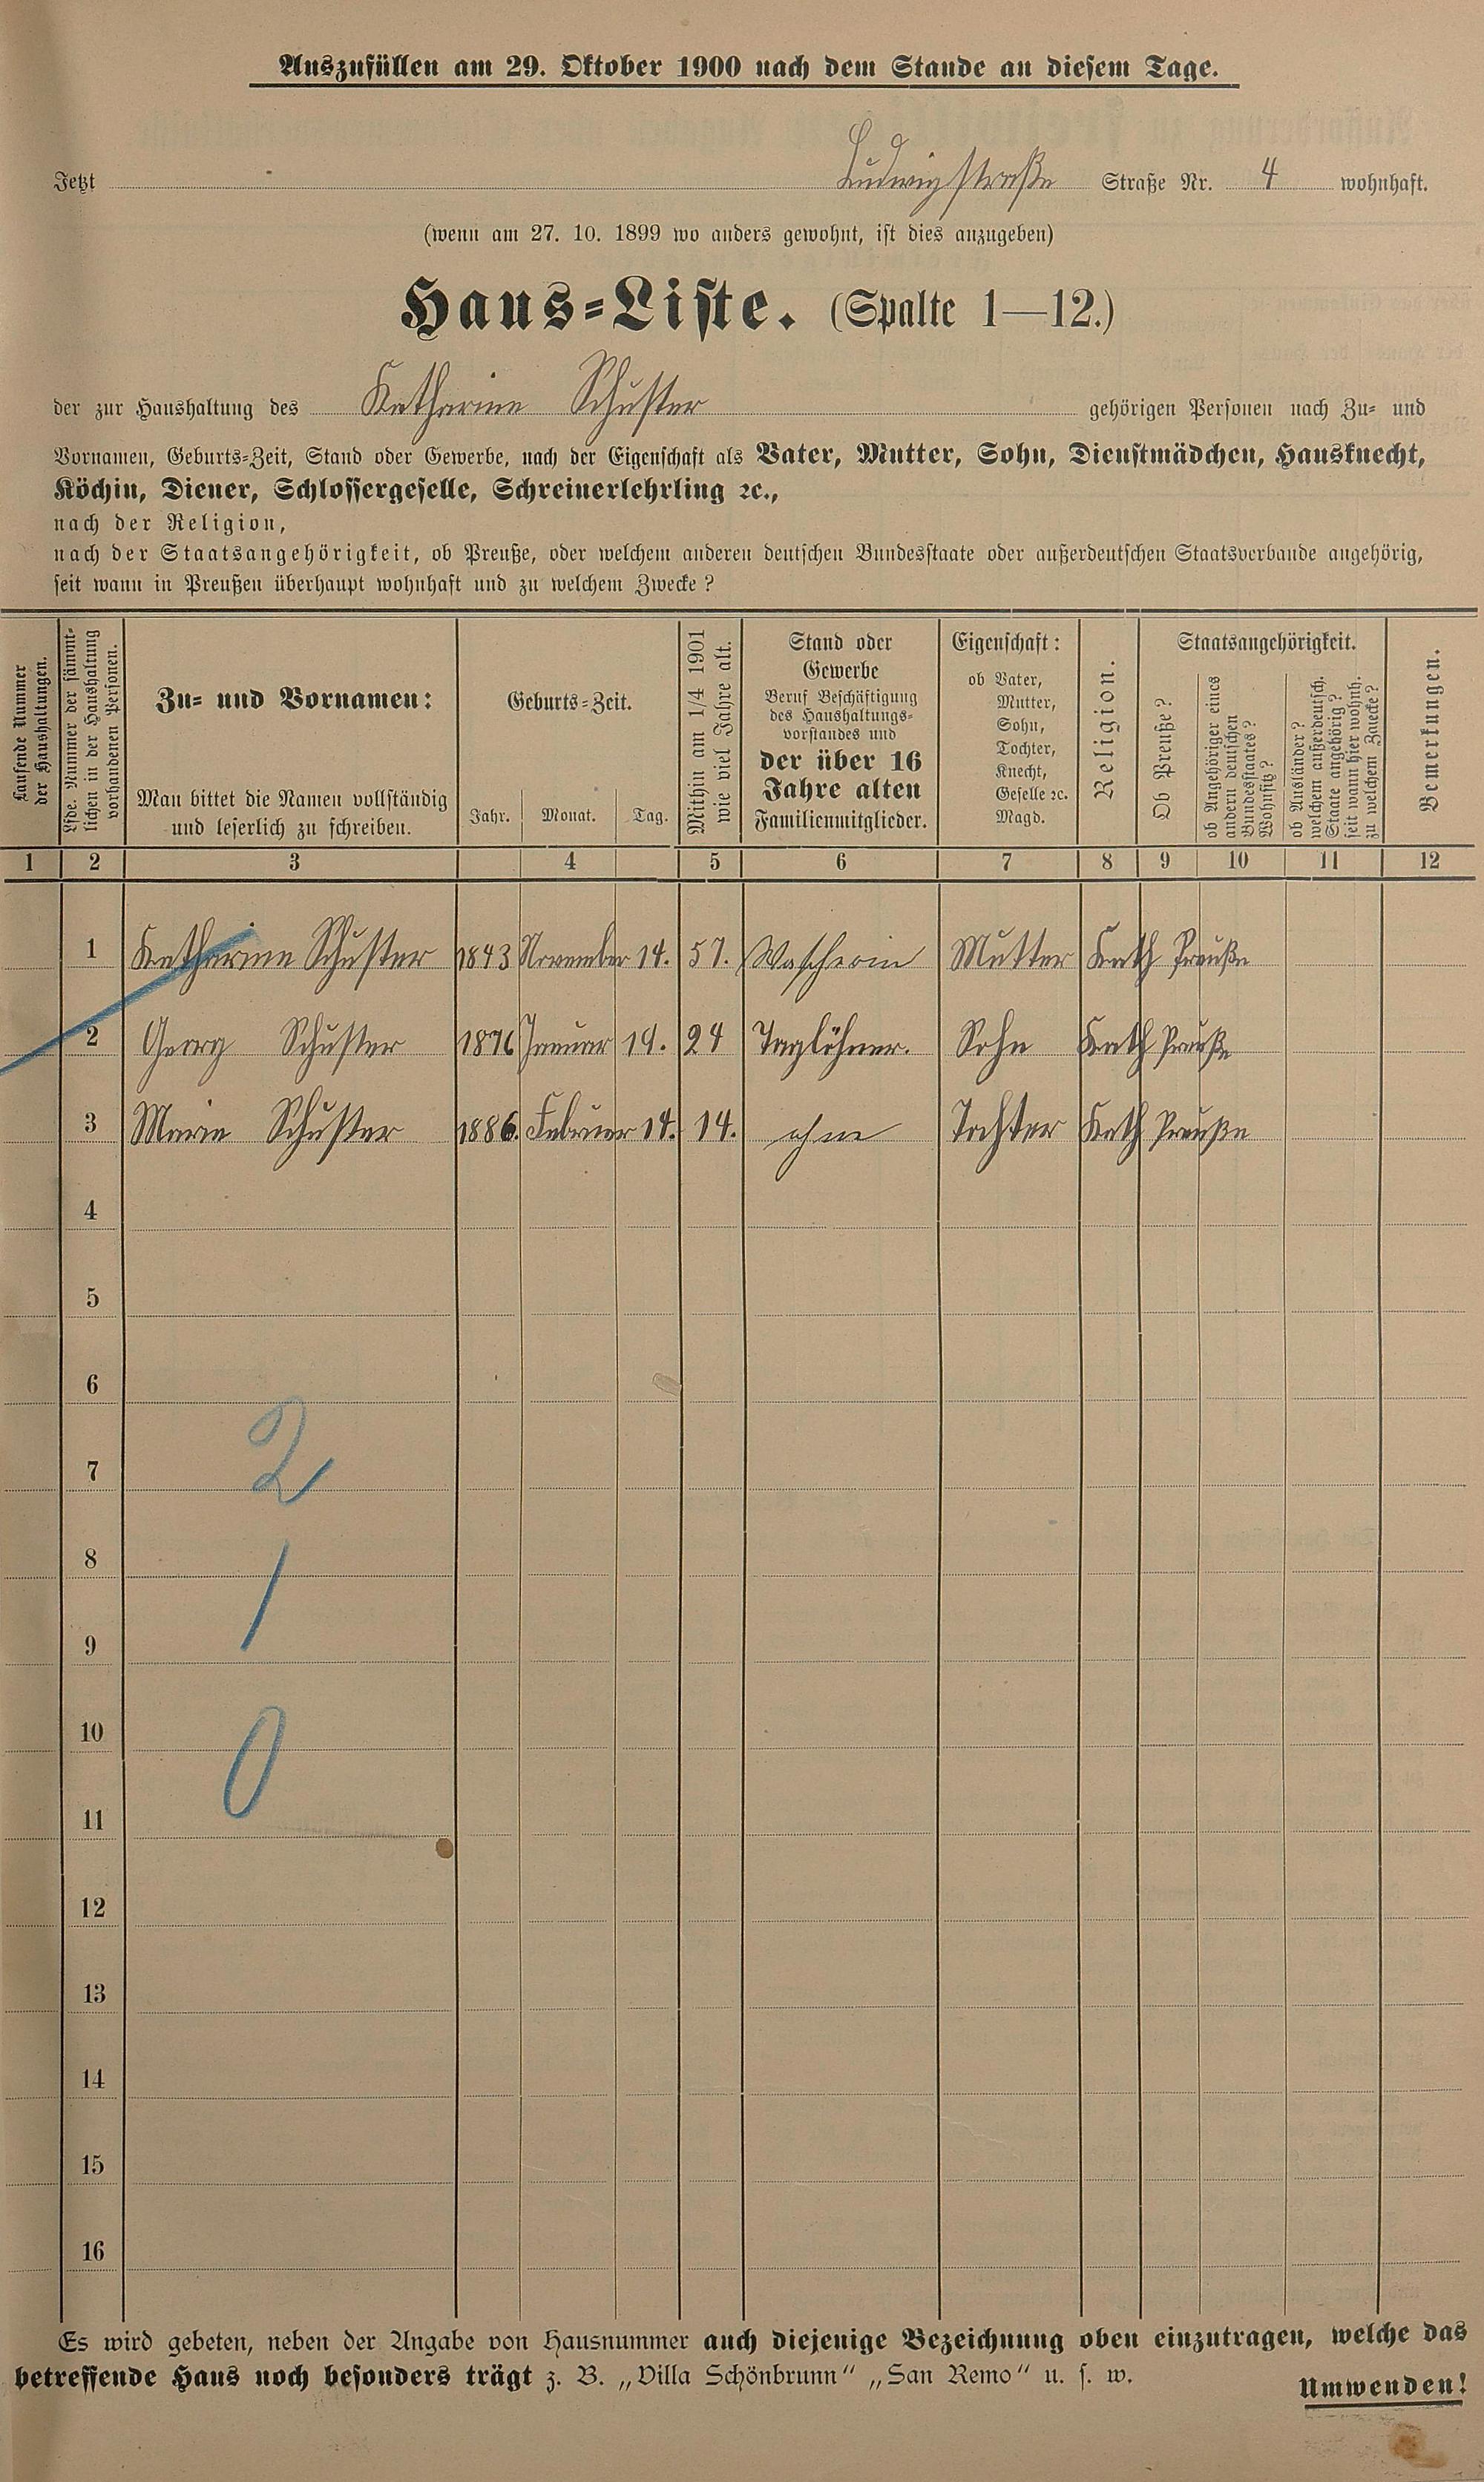 Auszufüllen am 29. Oktober 1900 nach dem Stande an diesem Tage.
Jetzt Ludwigstraße Straße Nr. 4 wohnhaft.
(wenn am 27. 10. 1899 wo anders gewohnt, ist dies anzugeben)
Haus-Liste. (Spalte 1—12.)
der zur Haushaltung des Katharine Schuster gehörigen Personen nach Zu- und
Vornamen, Geburts-Zeit, Stand oder Gewerbe, nach der Eigenschaft als Vater, Mutter, Sohn, Dienstmädchen, Hausknecht,
Köchin, Diener, Schlossergeselle, Schreinerlehrling ꝛc.,
nach der Religion,
nach der Staatsangehörigkeit, ob Preuße, oder welchem anderen deutschen Bundesstaate oder außerdeutschen Staatsverbande angehörig,
seit wann in Preußen überhaupt wohnhaft und zu welchem Zwecke?
Laufende Nummer
der Haushaltungen.
Lfde. Nummer der sämmt-
lichen in der Haushaltung
vorhandenen Personen.
Zu- und Vornamen:
Man bittet die Namen vollständig
und leserlich zu schreiben.
Geburts-Zeit.
Jahr. Monat. Tag.
Mithin am 1/4 1901
wie viel Jahre alt.
Stand oder
Gewerbe
Beruf Beschäftigung
des Haushaltungs-
vorstandes und
der über 16
Jahre alten
Familienmitglieder.
Eigenschaft:
ob Vater,
Mutter,
Sohn,
Tochter,
Knecht,
Geselle ꝛc.
Magd.
Religion.
Staatsangehörigkeit.
Ob Preuße?
ob Angehöriger eines
andern deutschen
Bundesstaates?
Wohnsitz?
ob Ausländer?
welchem außerdeutsch.
Staate angehörig?
seit wann hier wohnh.
zu welchem Zwecke?
Bemerkungen.
1 2 3 4 5 6 7 8 9 10 11 12
1 Katharine Schuster 1843 November 14. 57. Wascherin Mutter Kath Preuße
2 Georg Schuster 1876 Januar 19. 24 Taglöhner. Sohn Kath Preuße
3 Marie Schuster 1886. Februar 14. 14. ohne Tochter Kath Preuße
4
5
6
7 2
8
1
9
10
0
11
12
13
14
15
16
Es wird gebeten, neben der Angabe von Hausnummer auch diejenige Bezeichnung oben einzutragen, welche das
betreffende Haus noch besonders trägt z. B. „Villa Schönbrunn“ „San Remo“ u. s. w.
Umwenden!